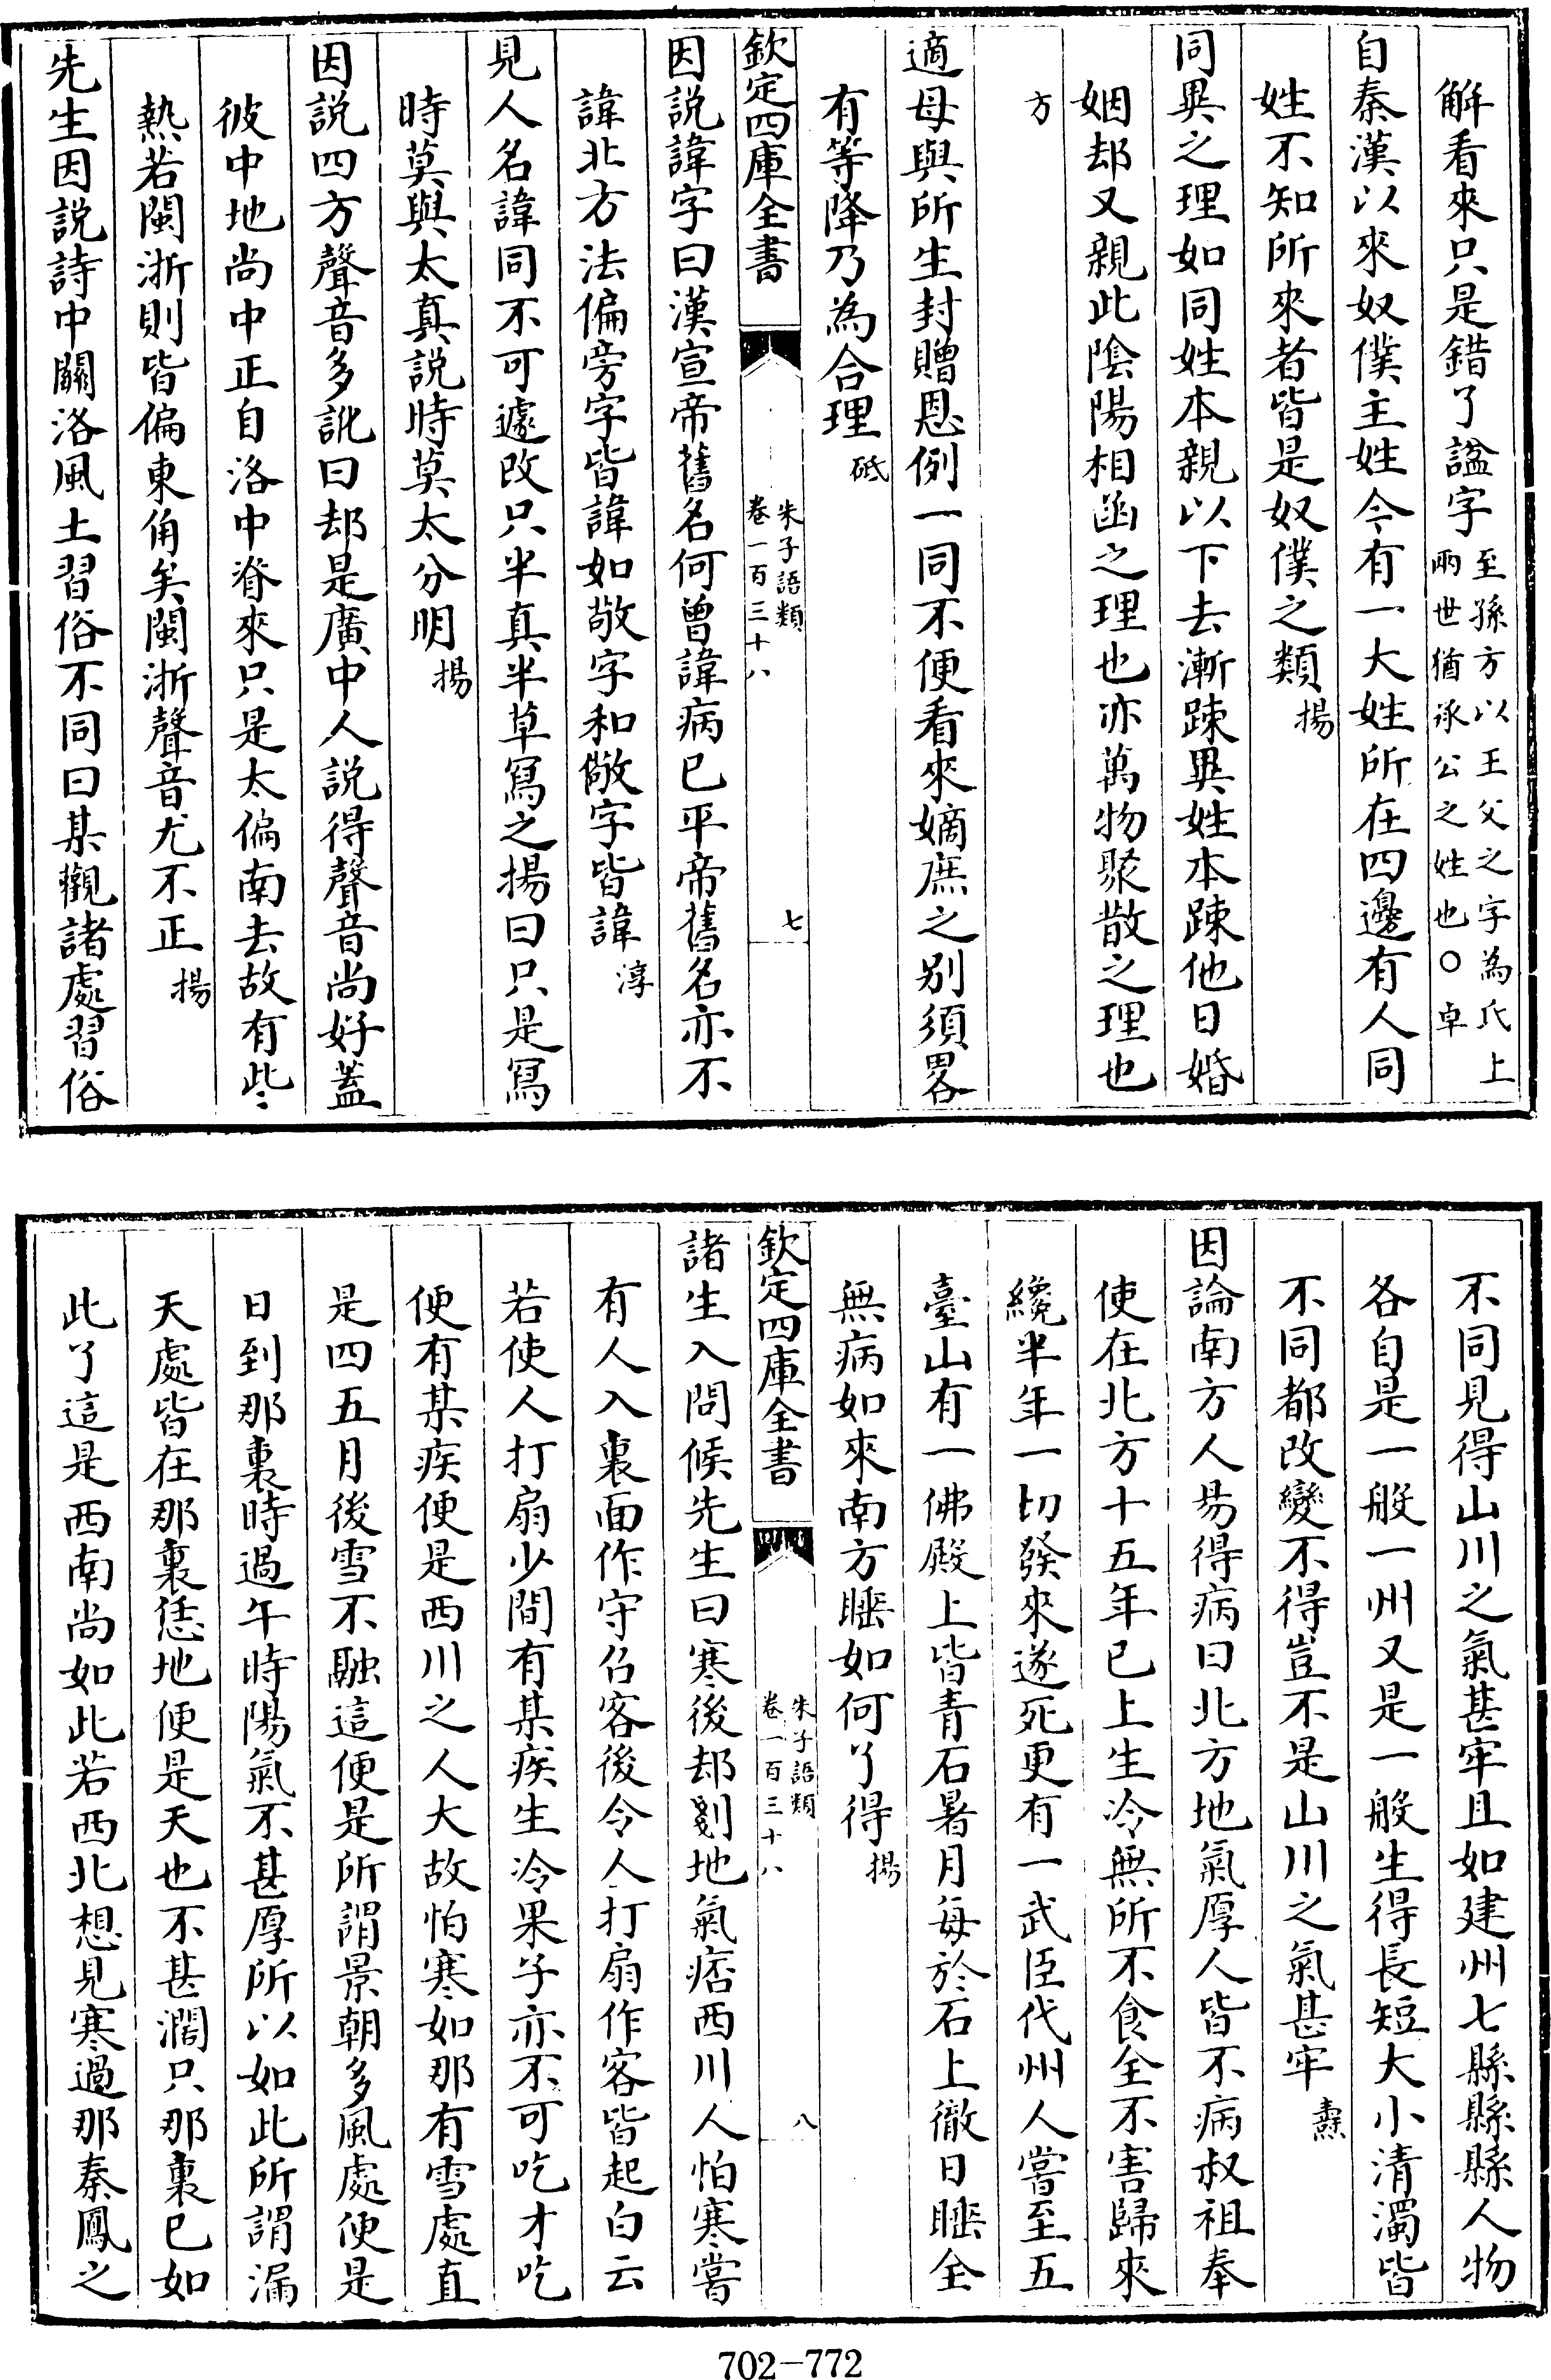 解看來只是錯了諡字至孫方以王父之字為氏上兩世猶承公之姓也○卓
自秦漢以來奴僕主姓今有一大姓所在四邊有人同
姓不知所來者皆是奴僕之類揚
同異之理如同姓本親以下去漸踈異姓本踈他日婚
姻却又親此陰陽相函之理也亦萬物聚散之理也
方
適母與所生封贈恩例一同不便看來嫡庶之別須畧
有等降乃為合理砥
欽定四庫全書
朱子語類
卷一百三十八
七
因說諱字曰漢宣帝舊名何曾諱病已平帝舊名亦不
諱北方法偏旁字皆諱如敬字和儆字皆諱淳
見人名諱同不可遽改只半真半草寫之揚曰只是寫
時莫與太真說時莫太分明揚
因説四方聲音多訛曰却是廣中人説得聲音尚好蓋
彼中地尚中正自洛中脊來只是太偏南去故有些
熱若閩浙則皆偏東角矣閩浙聲音尤不正揚
先生因説詩中關洛風土習俗不同曰某觀諸處習俗
不同見得山川之氣甚牢且如建州七縣縣縣人物
各自是一般一州又是一般生得長短大小清濁皆
不同都改變不得豈不是山川之氣甚牢燾
因論南方人易得病曰北方地氣厚人皆不病叔祖奉
使在北方十五年已上生冷無所不食全不害歸來
纔半年一切發來遂死更有一武臣代州人嘗至五
臺山有一佛殿上皆青石暑月每於石上徹日睡全
無病如來南方睡如何了得揚
欽定四庫全書
朱子語類
卷一百三十八
八
諸生入問候先生曰寒後却剗地氣痞西川人怕寒嘗
有人入裏面作守召客後令人打扇作客皆起白云
若使人打扇少間有某疾生冷果子亦不可吃才吃
便有某疾便是西川之人大故怕寒如那有雪處直
是四五月後雪不融這便是所謂景朝多風處便是
日到那裏時過午時陽氣不甚厚所以如此所謂漏
天處皆在那裏恁地便是天也不甚濶只那裏已如
此了這是西南尚如此若西北想見寒過那秦鳳之
702-772